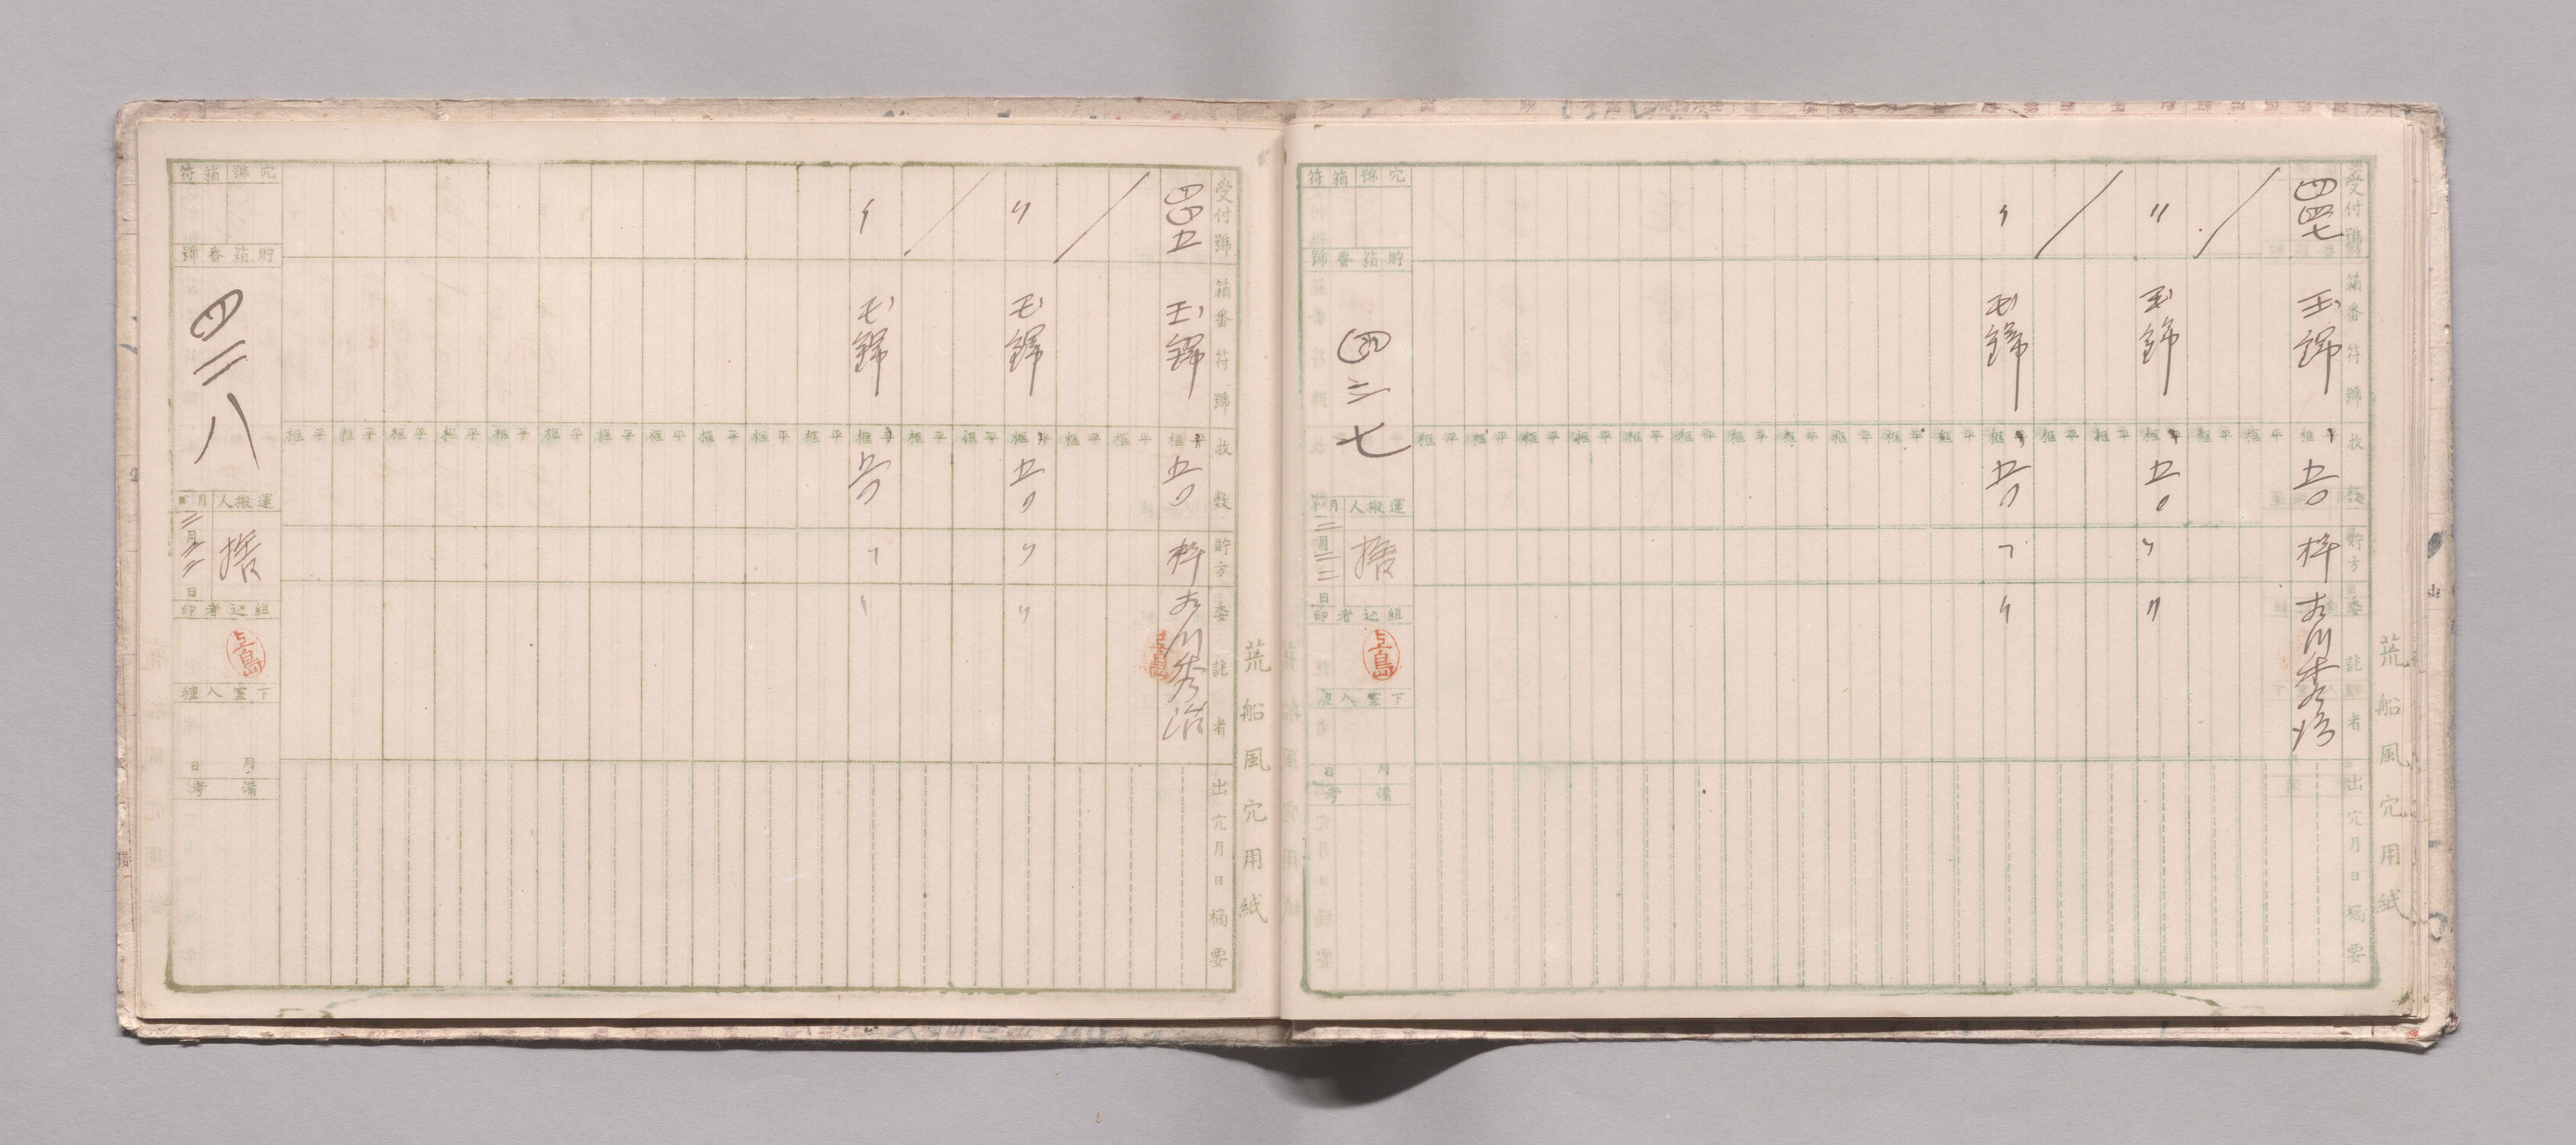 荒船風穴用紙
受付號
箱番符號
枚数
貯方
委託者
出穴月日摘要
四四七
玉錦
平框
五〇
枠
〃
玉錦
五〇
〃
〃
〃
玉錦
五〇
〃
〃
穴號箱符
貯箱番號
四二七
運搬人
月日
二月二二日
捨
組込者印
下室入種
月日
備考
荒船風穴用紙
受付號
箱番符號
枚数
貯方
委託者
出穴月日摘要
四四五
玉錦
平框
五〇
枠
〃
玉錦
五〇
〃
〃
〃
玉錦
五〇
〃
〃
穴號箱符
貯箱番號
四二八
運搬人
月日
二月二二日
捨
組込者印
下室入種
月日
備考